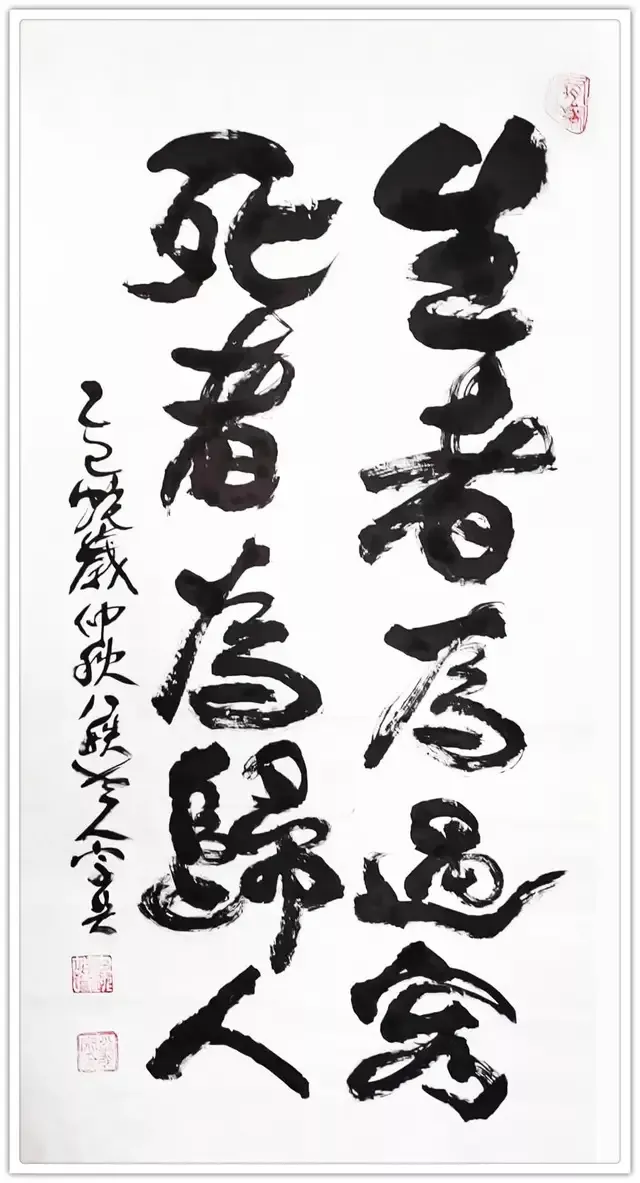 生者為過客
死者為歸人
乙巳蛇歲仲秋八人